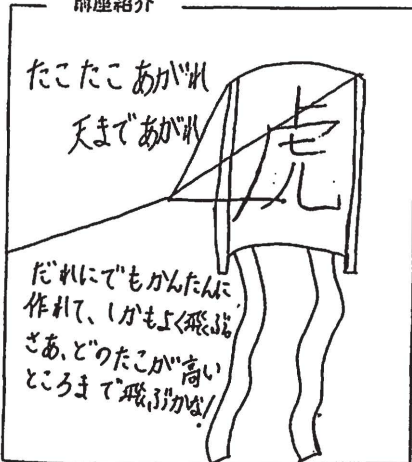 講座紹介
たこたこあがれ
天まであがれ
虎
だれにでもかんたんに
作れて、しかもよく飛ぶ。
さあ、どのたこが高い
ところまで飛ぶかな!